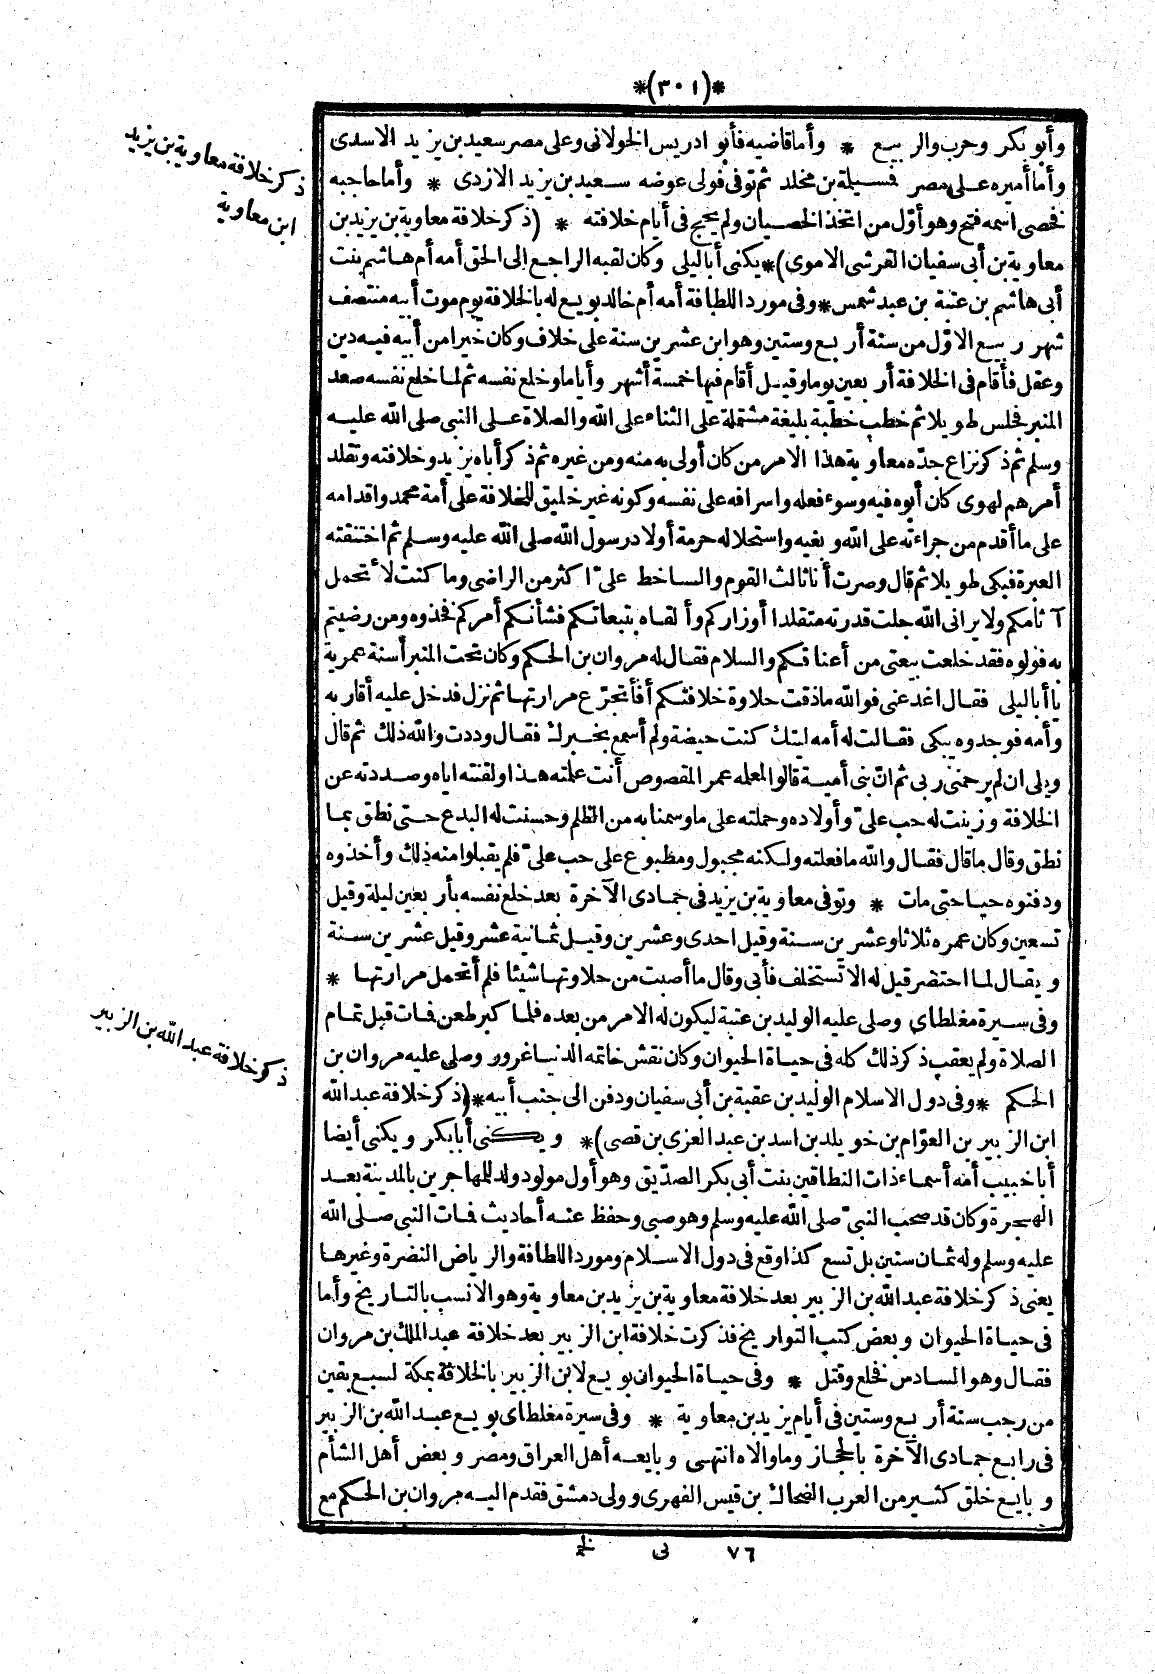 *(٣٠١)*
ذكر خلافة معاوية بن يزيد
ابن معاوية
وأبو بكر وحرب والربيع * وأما قاضيه فأبو ادريس الخولانى وعلى مصر سعيد بن يزيد الاسدى
وأما أميره على مصر فسيلة بن مخلد ثم توفى فولى عوضه سعيد بن يزيد الازدى * وأما حاجبه
نخصى اسمه فتح وهو أوّل من اتخذ الخصيان ولم يحج فى أيام خلافته * (ذكر خلافة معاوية بن يزيد بن
معاوية بن أبى سفيان القرشى الاموى)* يكنى أبا ليلى وكان لقبه الراجع الى الحق أمه أم هاشم بنت
أبى هاشم بن عتبة بن عبد شمس * وفى مورد اللطافة أمه أم خالد بويع له بالخلافة يوم موت أبيه منتصف
شهر ربيع الاوّل من سنة أربع وستين وهو ابن عشرين سنة على خلاف وكان خيرا من أبيه فيه دين
وعقل فأقام فى الخلافة أربعين يوما وقيل أقام فيها خمسة أشهر وأياما وخلع نفسه ثم لما خلع نفسه صعد
المنبر فجلس طويلا ثم خطب خطبة بليغة مشتملة على الثناء على الله والصلاة على النبى صلى الله عليه
وسلم ثم ذكر نزاع جدّه معاوية هذا الامر من كان أولى به منه ومن غيره ثم ذكر أباه يزيد وخلافته وتقلد
أمرهم لهوى كان أبوه فيه وسوء فعله واسرافه على نفسه وكونه غير خليق للخلافة على أمة محمد واقدامه
على ما أقدم من جراءته على الله وبغيه واستحلاله حرمة أولاد رسول الله صلى الله عليه وسلم ثم اختنقته
العبرة فبكى طويلا ثم قال وصرت أنا ثالث القوم والساخط علىّ اكثر من الراضى وما كنت لأتحمل
آثامكم ولا يرانى الله جلت قدرته متقلدا أوزاركم وألقاه بتبعاتكم فشأنكم أمركم فخذوه ومن رضيتم
به فولوه فقد خلعت بيعتى من أعناقكم والسلام فقال له مروان بن الحكم وكان تحت المنبر أسنة عمرية
يا أبا ليلى فقال اغد عنى فوالله ما ذقت حلاوة خلافتكم أفأتجرّع مرارتها ثم نزل فدخل عليه أقاربه
وأمه فوجدوه يبكى فقالت له أمه ليتك كنت حيضة ولم أسمع بخبرك فقال وددت والله ذلك ثم قال
ويلى ان لم يرحمنى ربى ثم انّ بنى أمية قالوا لمعلمه عمر المقصوص أنت علمته هذا ولقنته اياه وصددته عن
الخلافة وزينت له حب علىّ وأولاده وحملته على ما وسمنا به من الظلم وحسنت له البدع حتى نطق بما
نطق وقال ما قال فقال والله ما فعلته ولكنه مجبول ومطبوع على حب علىّ فلم يقبلوا منه ذلك وأخذوه
ودفنوه حيا حتى مات * وتوفى معاوية بن يزيد فى جمادى الآخرة بعد خلع نفسه بأربعين ليلة وقيل
تسعين وكان عمره ثلاثا وعشرين سنة وقيل احدى وعشرين وقيل ثمانية عشر وقيل عشرين سنة
ويقال لما احتضر قيل له الا تستخلف فأبى وقال ما أصبت من حلاوتها شيئا فلم أتحمل مرارتها *
وفى سيرة مغلطاى وصلى عليه الوليد بن عتبة ليكون له الامر من بعده فلما كبر طعن فمات قبل تمام
الصلاة ولم يعقب ذكر ذلك كله فى حياة الحيوان وكان نقش خاتمه الدنيا غرور وصلى عليه مروان بن
الحكم * وفى دول الاسلام الوليد بن عقبة بن أبى سفيان ودفن الى جنب أبيه * (ذكر خلافة عبد الله
ابن الزبير بن العوّام بن خويلد بن اسد بن عبد العزى بن قصى)* ويكنى أبا بكر ويكنى أيضا
أبا خبيب أمه أسماء ذات النطاقين بنت أبى بكر الصدّيق وهو أول مولود ولد للمهاجرين بالمدينة بعد
الهجرة وكان قد صحب النبىّ صلى الله عليه وسلم وهو صبى وحفظ عنه أحاديث فمات النبى صلى الله
عليه وسلم وله ثمان سنين بل تسع كذا وقع فى دول الاسلام ومورد اللطافة والرياض النضرة وغيرها
يعنى ذكر خلافة عبد الله بن الزبير بعد خلافة معاوية بن يزيد بن معاوية وهو الانسب بالتاريخ وأما
فى حياة الحيوان وبعض كتب التواريخ فذكرت خلافة ابن الزبير بعد خلافة عبد الملك بن مروان
فقال وهو السادس فخلع وقتل * وفى حياة الحيوان بويع لابن الزبير بالخلافة بمكة لسبع بقين
من رجب سنة أربع وستين فى أيام يزيد بن معاوية * وفى سيرة مغلطاى بويع عبد الله بن الزبير
فى رابع جمادى الآخرة بالحجاز وما والاه انتهى وبايعه أهل العراق ومصر وبعض أهل الشأم
وبايع خلق كثير من العرب الضحاك بن قيس الفهرى وولى دمشق فقدم اليه مروان بن الحكم مع
ذكر خلافة عبد الله بن الزبير
٧٦ نى